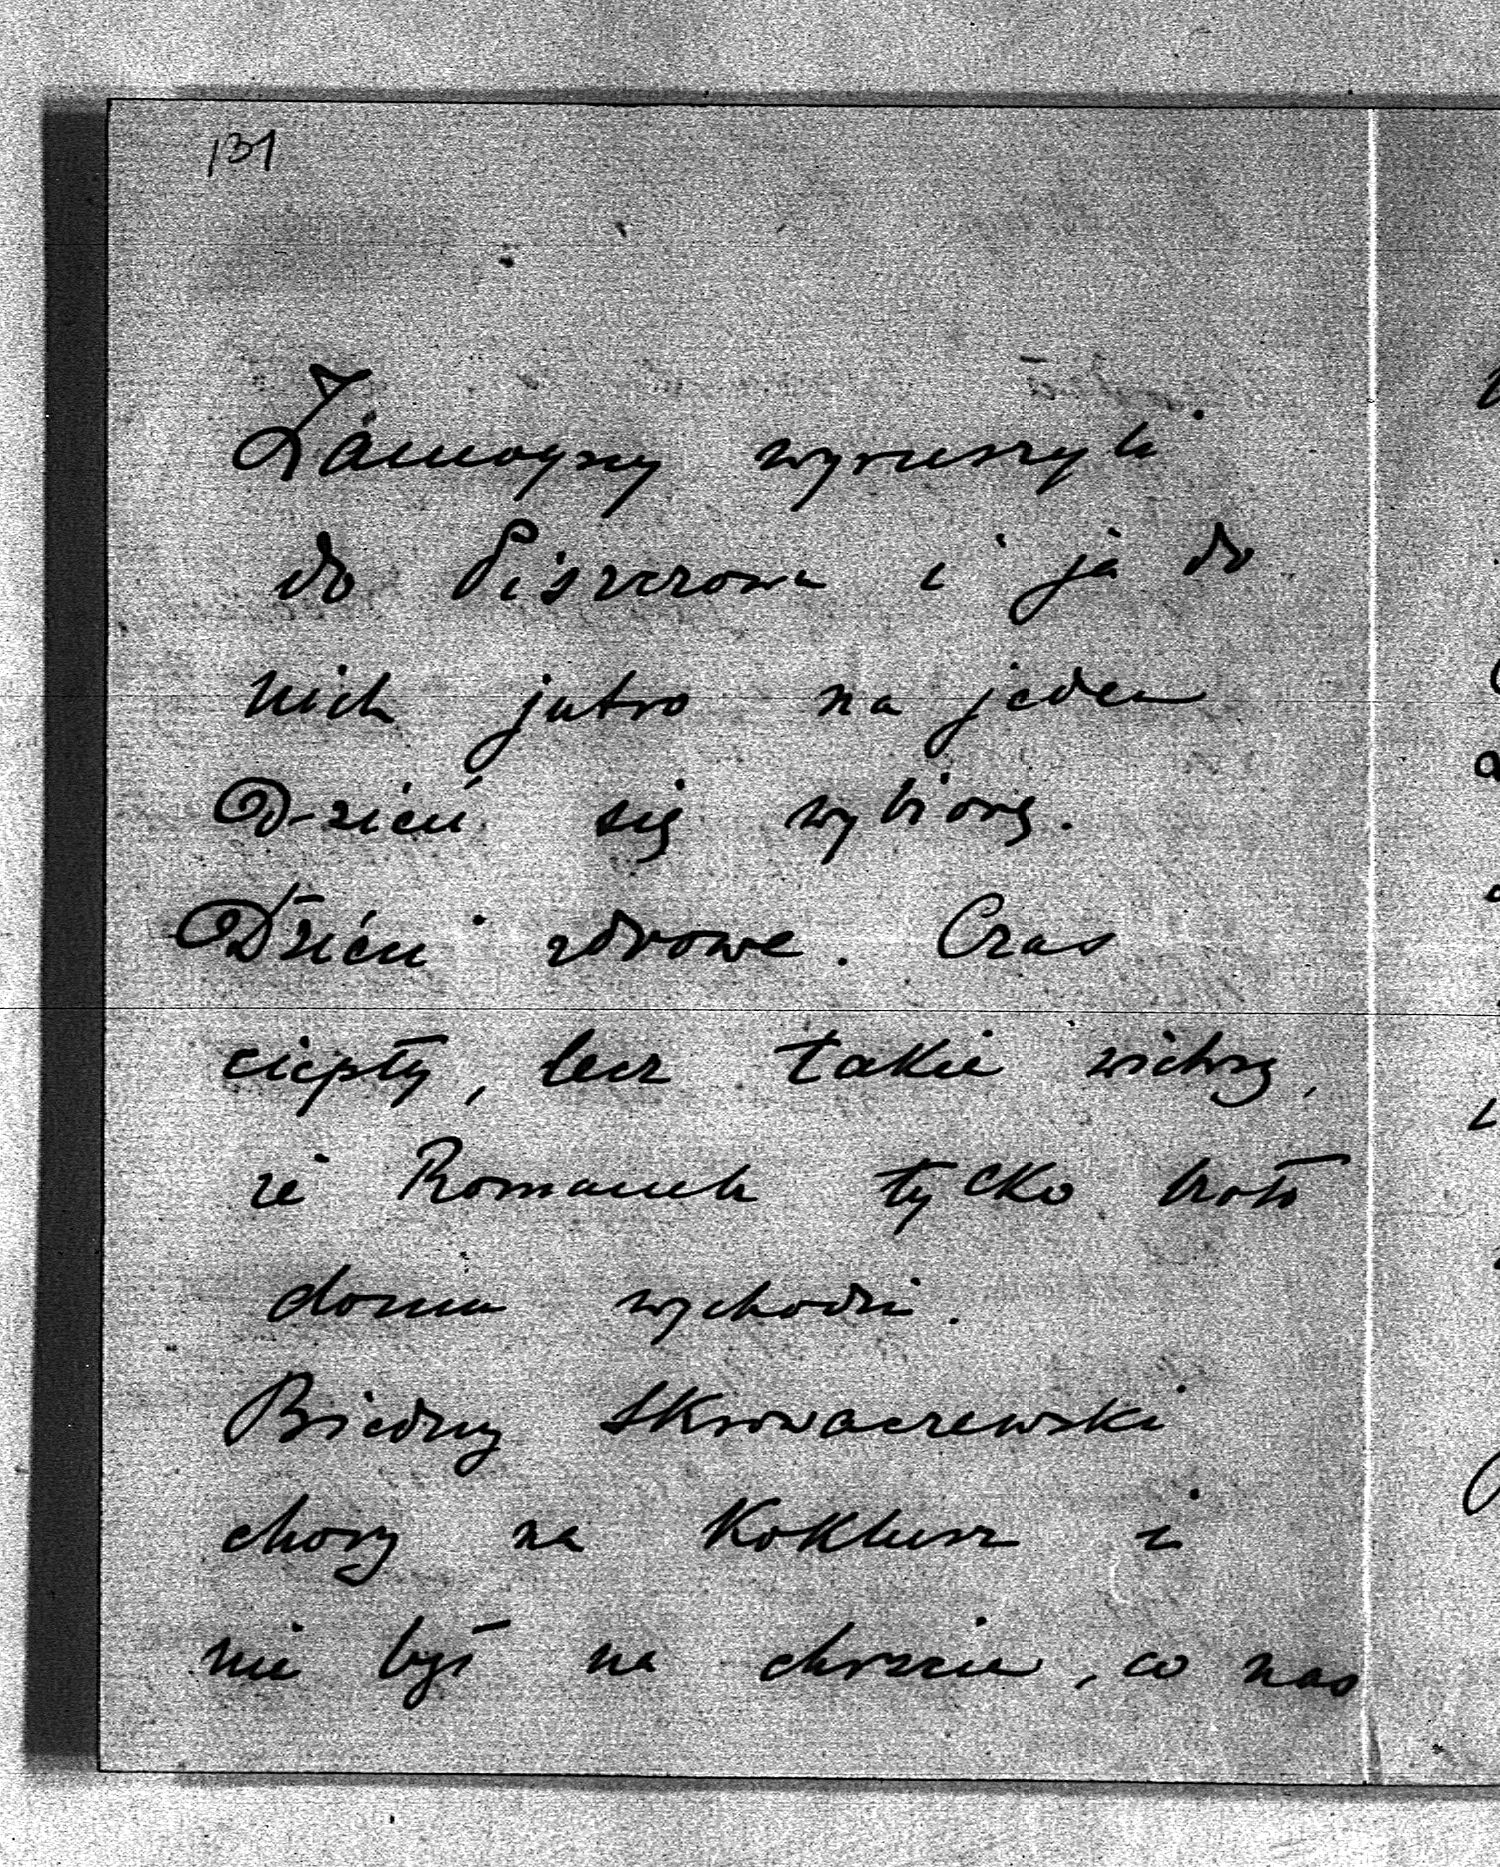 131
Zamoyscy wyruszyli
do Piszczowa i ja do
nich jutro na jeden
Dzień się wybiorę.
Dzieci zdrowe. Czas
ciepły, lecz takie wichry,
że Romanek tylko koło
domu wychodzi.
Biedny Skrowaczewski
chory na Koklusz i
nie był na chrzcie, co nas